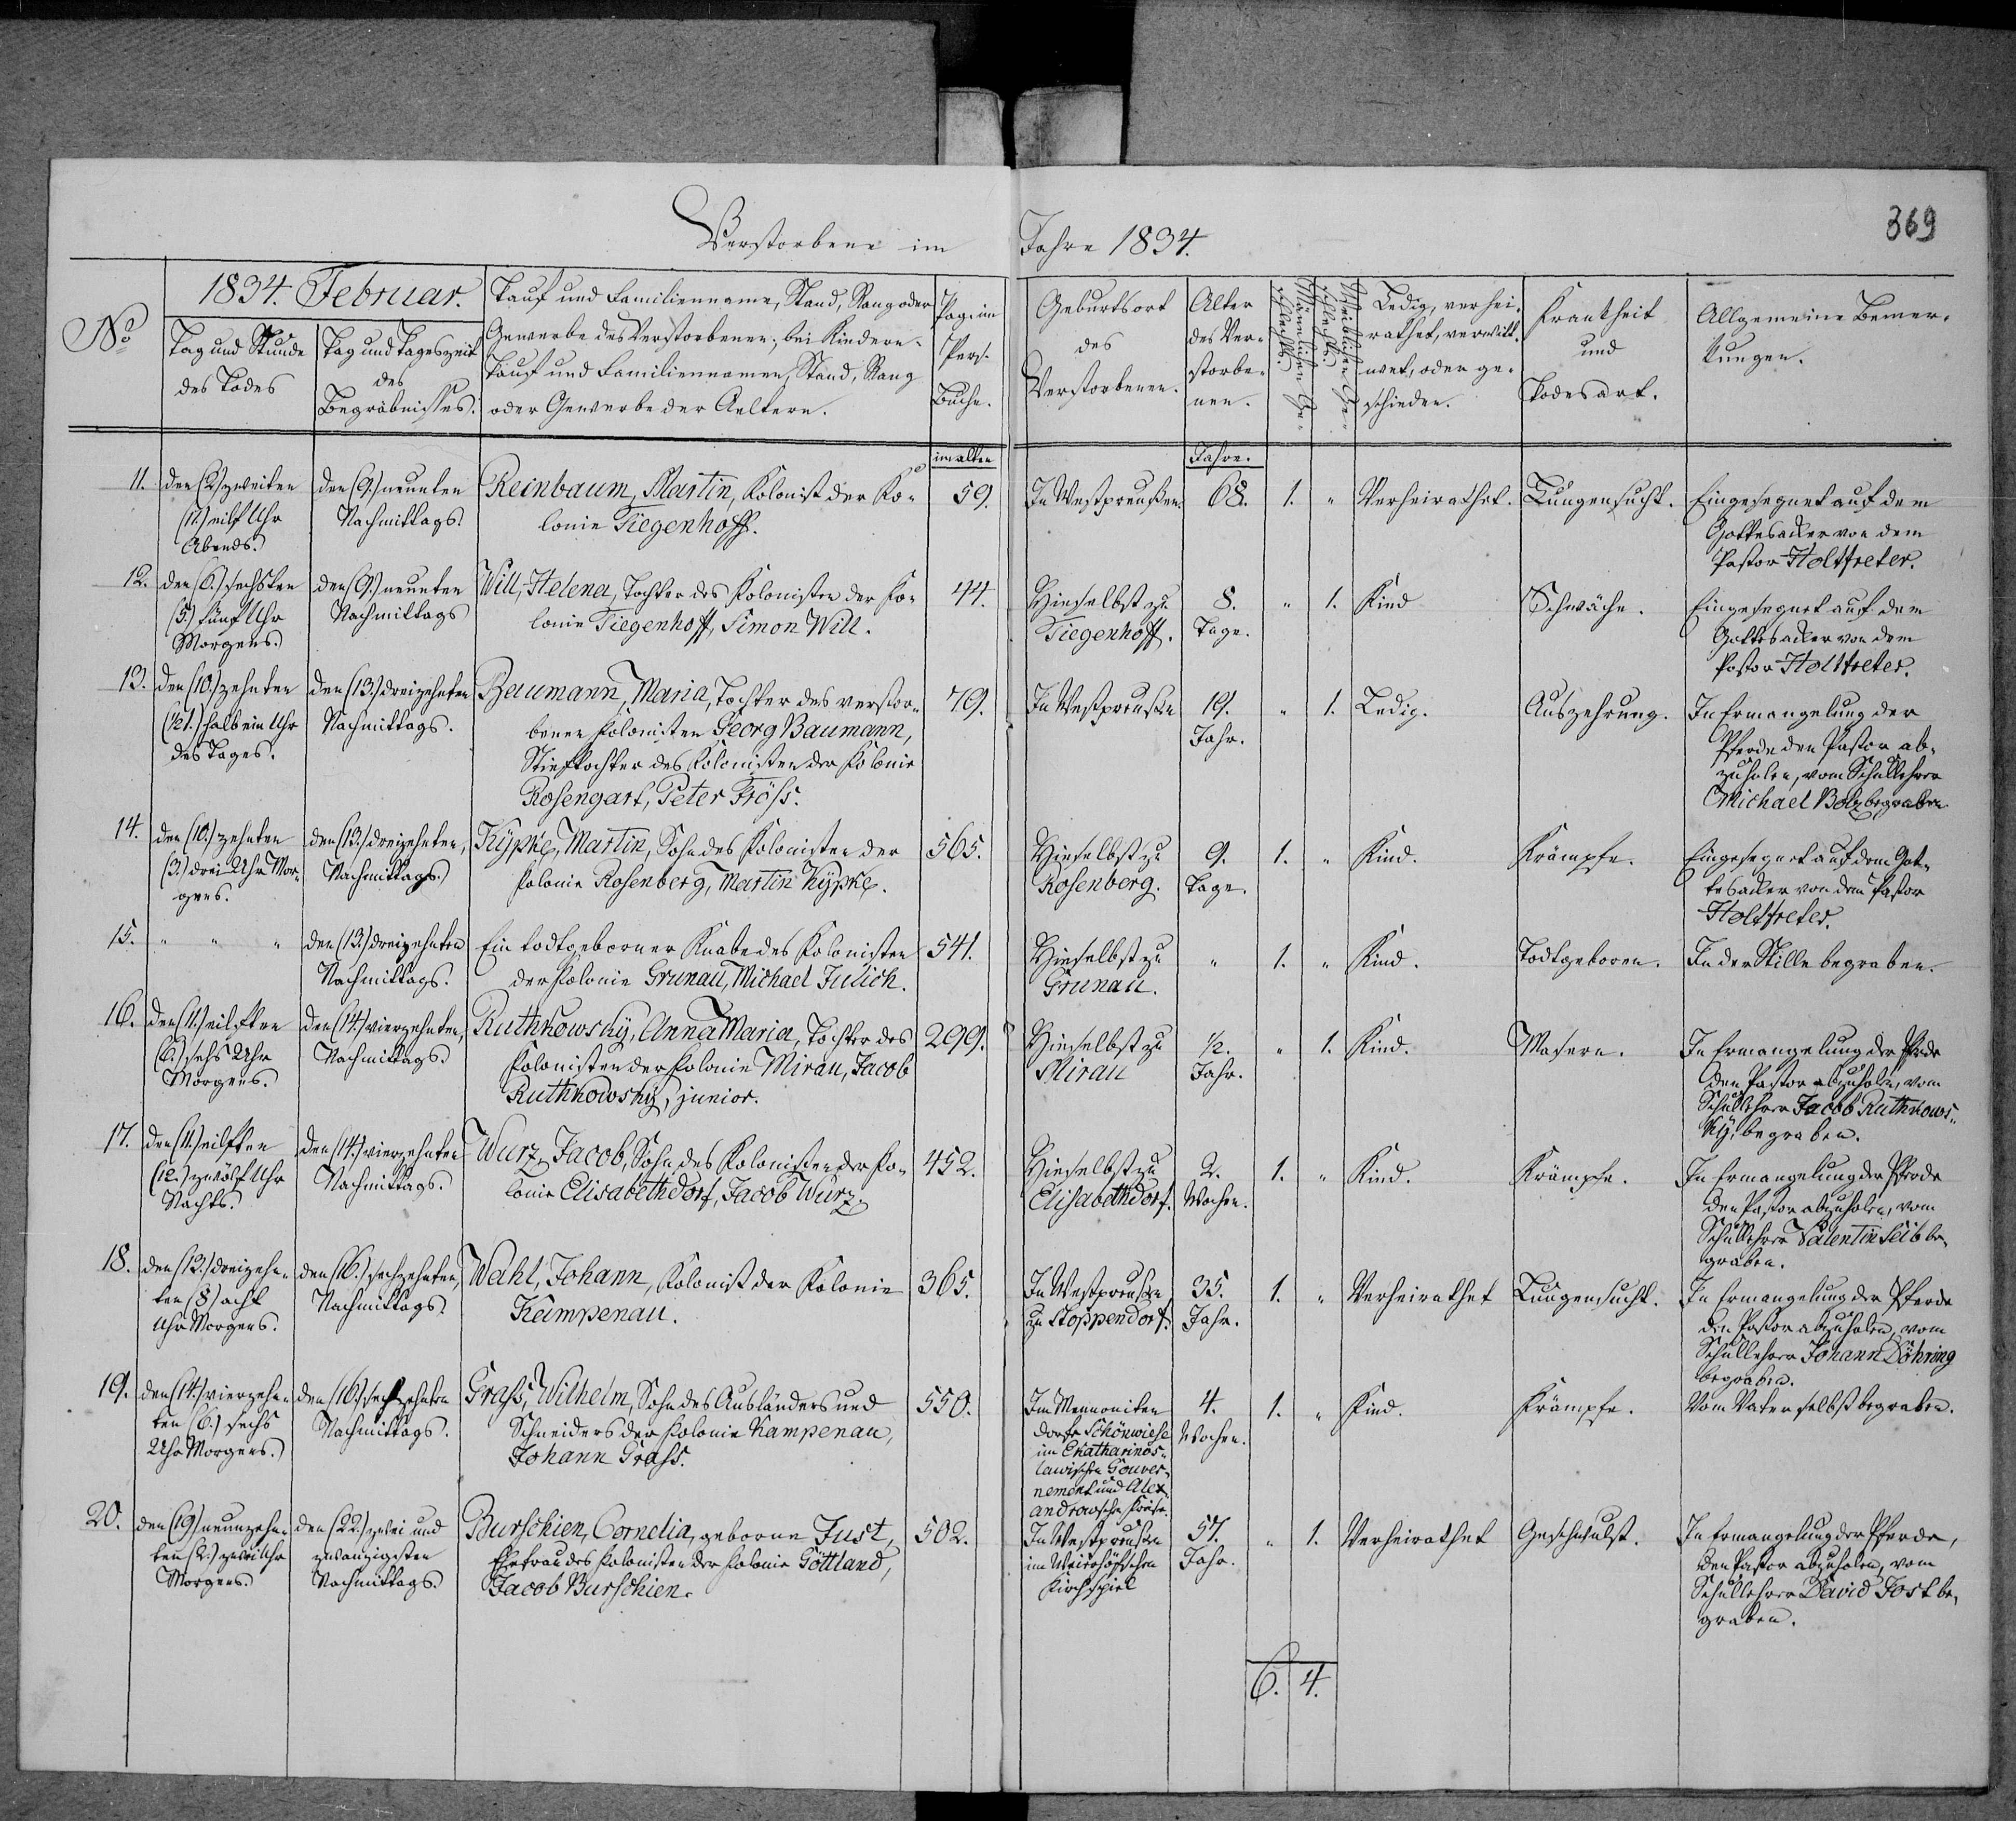 369
Verstorbene im Jahre 1834.
No
1834. Februar.
Tag und Stunde
des Todes
Tag und Tageszeit
des
Begräbnisses.
Tauf und Familienname, Stand, Rang oder
Gewerbe des Verstorbenen; bei Kindern
Tauf und Familiennamen, Stand, Rang
oder Gewerbe der Aeltern.
Pag. im
Pers.
Buche.
Geburtsort
des
Verstorbenen.
Alter
des Ver-
storbe-
nen.
Männlichen Ge-
schlechts.
Weiblichen Ge-
schlechts.
Ledig, verhei-
rathet, verwitt-
wet, oder ge-
schieden.
Krankheit
und
Todesart.
Allgemeine Bemer-
kungen.
im alten
Jahre.
11.
den (2.) zweiten
(11.) eilf Uhr
Abends.
den (9.) neunten
Nachmittags.
Reinbaum, Martin, Kolonist der Ko-
lonie Tiegenhoff.
59.
In Westpreußen
68.
1.
"
Verheirathet.
Lungensucht.
Eingesegnet auf dem
Gottesacker von dem
Pastor Holtfreter.
12.
den (6.) sechsten
(5.) fünf Uhr
Morgens.
den (9.) neunten
Nachmittags
Will, Helena, Tochter des Kolonisten der Ko-
lonie Tiegenhoff, Simon Will.
44.
Hieselbst zu
Tiegenhoff.
8.
Tage.
"
1.
Kind
Schwäche.
Eingesegnet auf dem
Gottesacker von dem
Pastor Holtfreter.
13.
den (10.) zehnten
(½1.) halb ein Uhr
des Tages.
den (13.) dreizehnten
Nachmittags.
Baumann, Maria, Tochter des verstor-
benen Kolonisten Georg Baumann,
Stieftochter des Kolonisten der Kolonie
Rosengart, Peter Fröss.
79.
In Westpreußen
19.
Jahr.
"
1.
Ledig.
Auszehrung.
In Ermangelung der
Pferde den Pastor ab-
zuholen, vom Schullehrer
Michael Bolz begraben.
14.
den (10.) zehnten
(3.) drei Uhr Mor-
gens.
den (13.) dreizehnten,
Nachmittags.
Kÿpke, Martin, Sohn des Kolonisten der
Kolonie Rosenberg, Martin Kÿpke.
565.
Hieselbst zu
Rosenberg.
9.
Tage.
1.
"
Kind.
Krämpfe.
Eingesegnet auf dem Got-
tesacker von dem Pastor
Holtfreter.
15.
" " "
den (13.) dreizehnten
Nachmittags.
Ein todtgeborner Knabe des Kolonisten
der Kolonie Grunau, Michael Julich.
541.
Hieselbst zu
Grunau.
"
1.
"
Kind.
Todtgeboren.
In der Stille begraben.
16.
den (11.) eilften
(6.) sechs Uhr
Morgens.
den (14.) vierzehnten,
Nachmittags.
Ruthkowskÿ, Anna Maria, Tochter des
Kolonisten der Kolonie Mirau, Jacob
Ruthkowskÿ, junior.
299.
Hieselbst zu
Mirau
½.
Jahr.
"
1.
Kind.
Masern.
In Ermangelung der Pferde
den Pastor abzuholen, vom
Schullehrer Jacob Ruthkows-
kÿ, begraben.
17.
den (11.) eilften
(12.) zwölf Uhr
Nachts.
den (14.) vierzehnten
Nachmittags.
Wurz, Jacob, Sohn des Kolonisten der Ko-
lonie Elisabethdorf, Jacob Wurz.
452.
Hieselbst zu
Elisabethdorf.
2.
Wochen.
1.
"
Kind.
Krämpfe.
In Ermangelung der Pferde
den Pastor abzuholen, vom
Schullehrer Valentin Seib be-
graben.
18.
den (13.) dreizehn-
ten (8) acht
Uhr Morgens.
den (16.) sechzehnten,
Nachmittags.
Wahl, Johann, Kolonist der Kolonie
Kampenau.
365.
In Westpreußen
zu Stoppendorf.
35.
Jahr.
1.
"
Verheirathet
Lungensucht.
In Ermangelung der Pferde
den Pastor abzuholen, vom
Schullehrer Johann Döhring
begraben.
19.
den (14.) vierzehn-
ten (6.) sechs
Uhr Morgens.
den (16.) sechzehnten
Nachmittags.
Grass, Wilhelm, Sohn des Ausländers und
Schneiders der Kolonie Kampenau,
Johann Grass.
550.
Im Mennoniten
dorfe Schönwiese
im Ekatharinos-
lawischen Gouver-
nement und Alex-
androwschen Kreise.
4.
Wochen.
1.
"
Kind.
Krämpfe.
Vom Vater selbst begraben.
20.
den (19) neunzehn-
ten (2.) zwei Uhr
Morgens.
den (22.) zwei und
zwanzigsten
Nachmittags.
Burschien, Cornelia, geborne Just,
Ehefrau des Kolonisten der Kolonie Göttland,
Jacob Burschien.
502.
In Westpreußen
im
Kirchspiel
57.
Jahr.
"
1.
Verheirathet
Geschwulst.
In Ermangelung der Pferde,
den Pastor abzuholen, vom
Schullehrer David Jost be-
graben.
6. 4.